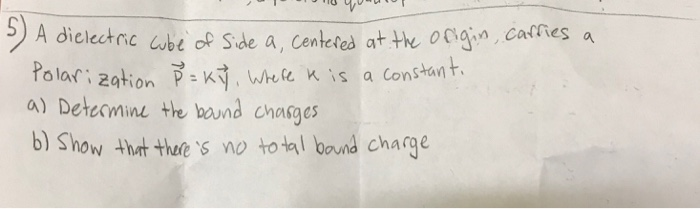 5) A dielectric cube of side a, centered at the origin, carries a
Polarization P⃗ = Ky⃗, where k is a constant.
a) Determine the bound charges
b) Show that there's no total bound charge